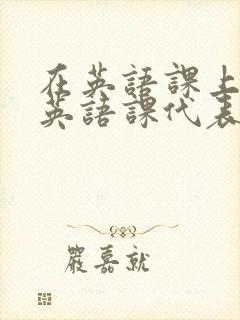 在英語課上
英語課代表
嚴嘉就